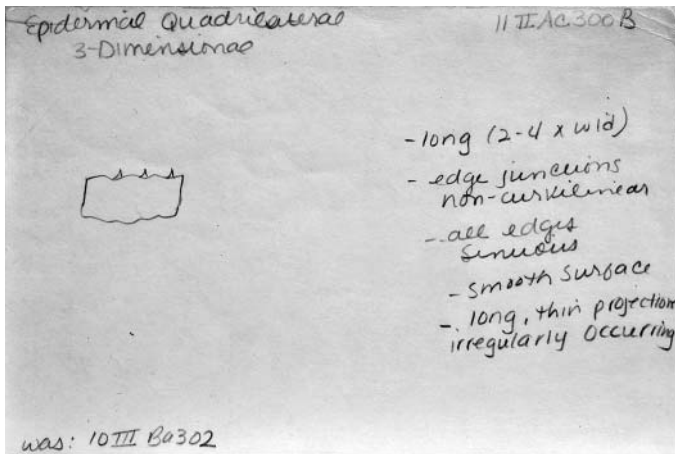 Epidermal Quadrilateral
3-Dimensional
11 II AC 300 B
- long (2-4 x wid)
- edge junctions
non-curvilinear
- all edges
sinuous
- smooth surface
- long, thin projection
irregularly occurring
was: 10 III Ba302